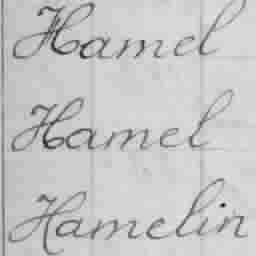 Hamel
Hamel
Hamelin